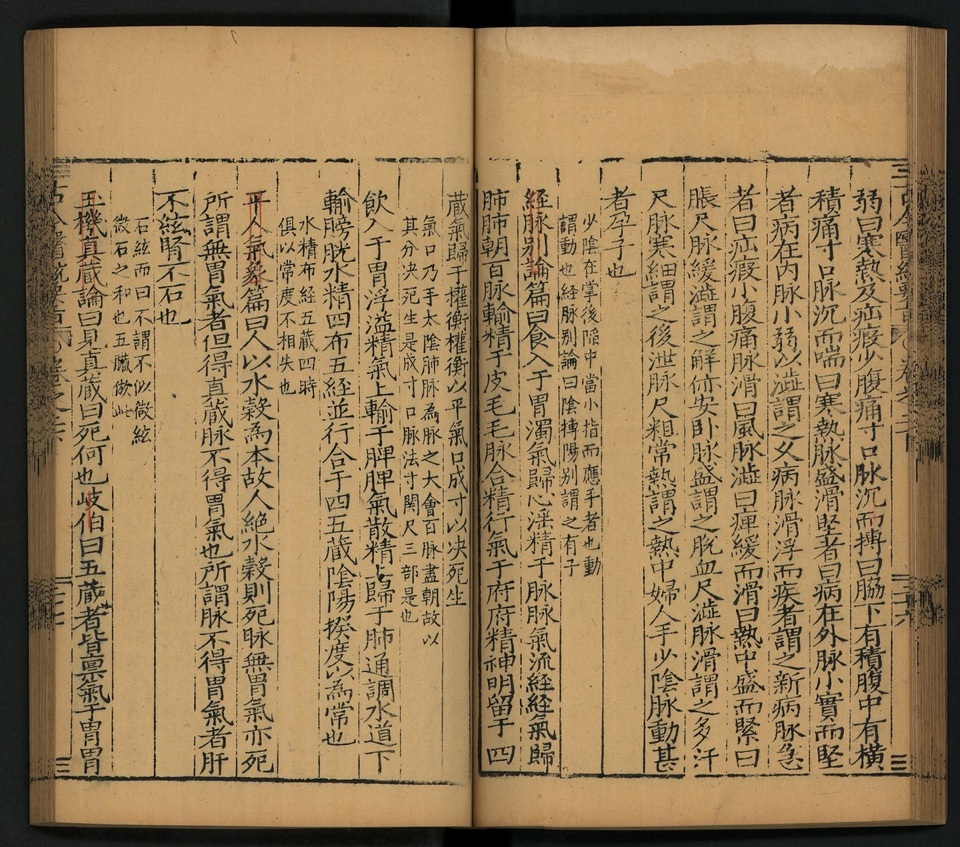 弱曰寒熱及疝瘕少腹痛寸口脉沉而搏曰脇下有積腹中有橫
積痛寸口脉沉而喘曰寒熱脉盛滑堅者曰病在外脉小實而堅
者病在内脉小弱以澁謂之久病脉滑浮而疾者謂之新病脉急
者曰疝瘕小腹痛脉滑曰風脉澁曰痺緩而滑曰熱中盛而緊曰
脹尺脉緩澁謂之解㑊安卧脉盛謂之脫血尺澁脉滑謂之多汗
尺脉寒細謂之後泄脉尺粗常熱謂之熱中婦人手少陰脉動甚
者孕子也
少陰在掌後陷中當小指而應手者也動
謂動也經脉别論曰陰摶陽别謂之有子
經脉别論篇曰食入于胃濁氣歸心淫精于脉脉氣流經經氣歸
肺肺朝百脉輸精于皮毛毛脉合精行氣于府府精神明留于四
蔵氣歸于權衡權衡以平氣口成寸以决死生
氣口乃手太陰肺脉為脉之大會百脉盡朝故以
其分决死生是成寸口脉法寸関尺三部是也
飲入于胃浮溢精氣上輸于脾脾氣散精上歸于肺通調水道下
輸膀胱水精四布五經並行合于四五蔵陰陽揆度以為常也
水精布經五蔵四時
俱以常度不相失也
平人氣象篇曰人以水穀為本故人絶水穀則死脉無胃氣亦死
所謂無胃氣者但得真蔵脉不得胃氣也所謂脉不得胃氣者肝
不絃腎不石也
石絃而曰不謂不似微絃
微石之和也五臟倣此
玉機真蔵論曰見真蔵曰死何也岐伯曰五蔵者皆禀氣于胃胃